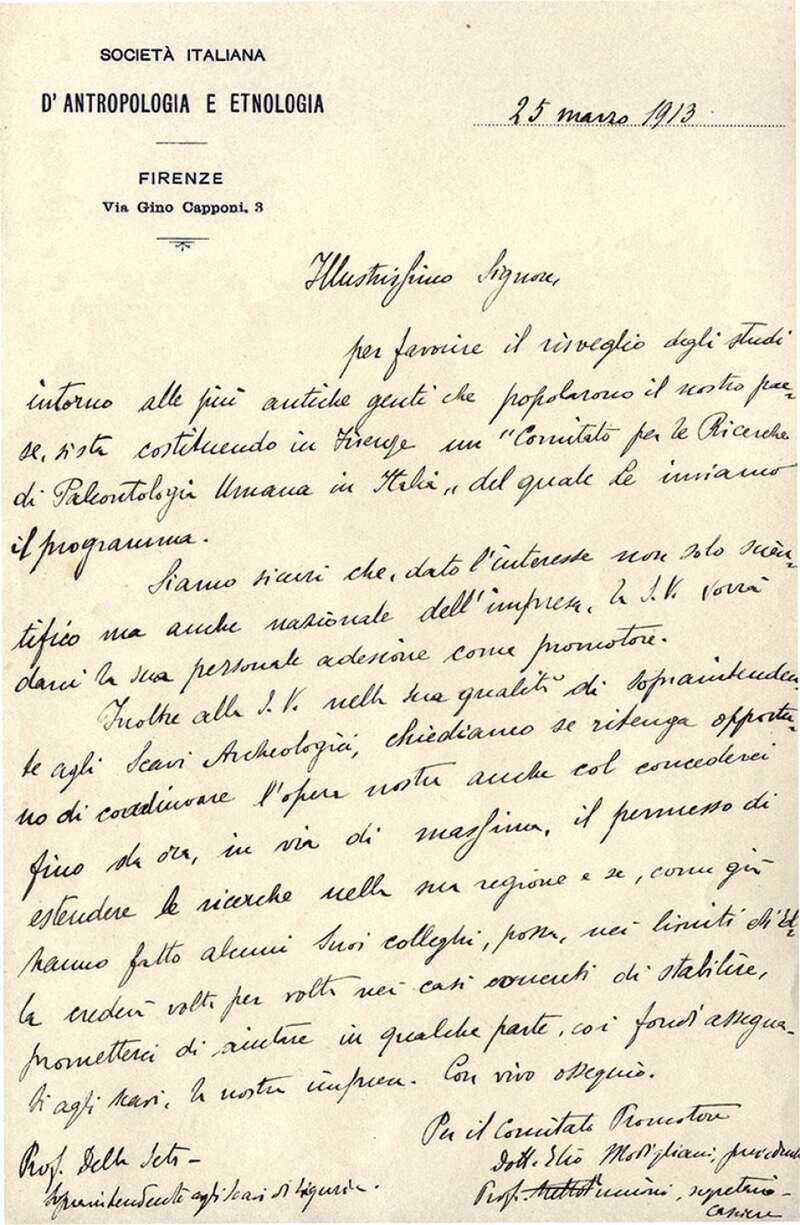 SOCIETÀ ITALIANA
D'ANTROPOLOGIA E ETNOLOGIA
FIRENZE
Via Gino Capponi, 3
25 marzo 1913
Illustrissimo Signore,
per favorire il risveglio degli studi
intorno alle più antiche genti che popolarono il nostro pae-
se, si sta costituendo in Firenze un "Comitato per le Ricerche
di Paleontologia Umana in Italia„ del quale Le inviamo
il programma.
Siamo sicuri che, dato l'interesse non solo scien-
tifico ma anche nazionale dell'impresa, la S.V. vorrà
darci la sua personale adesione come promotore.
Inoltre alla S.V. nella sua qualità di sopraintenden-
te agli Scavi Archeologici, chiediamo se ritenga opportu-
no di coadiuvare l'opera nostra anche col concederci
fino da ora, in via di massima, il permesso di
estendere le ricerche nella sua regione e se, come già
hanno fatto alcuni Suoi colleghi, possa, nei limiti ch'El-
la crederà volta per volta nei casi concreti di stabilire,
prometterci di aiutare in qualche parte, coi fondi assegna-
ti agli scavi, la nostra impresa. Con vivo ossequio.
Per il Comitato Promotore
Dott. Elio Modigliani, presidente
Prof. segretario-
cassiere
Prof. Della Seta -
Sopraintendente agli scavi di Liguria.